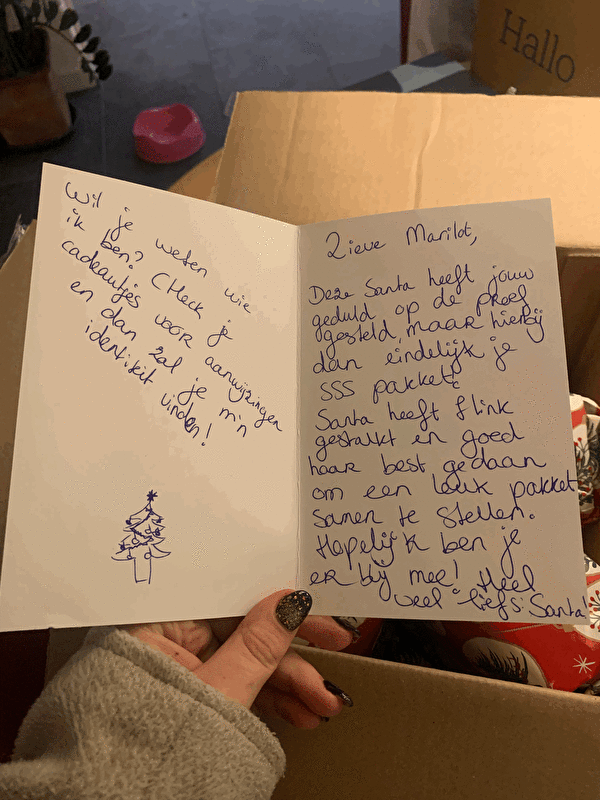 Hallo
Wil je weten wie
ik ben? CHeck je
cadeautjes voor aanwijzingen
en dan zal je m'n
identiteit vinden!
Lieve Marilot,
Deze Santa heeft jouw
geduld op de proef
gesteld, maar hierbij
dan eindelijk je
SSS pakket
Santa heeft flink
gestalkt en goed
haar best gedaan
om een leuk pakket
samen te stellen.
Hopelijk ben je
er blij mee! Heel
veel liefs: Santa!